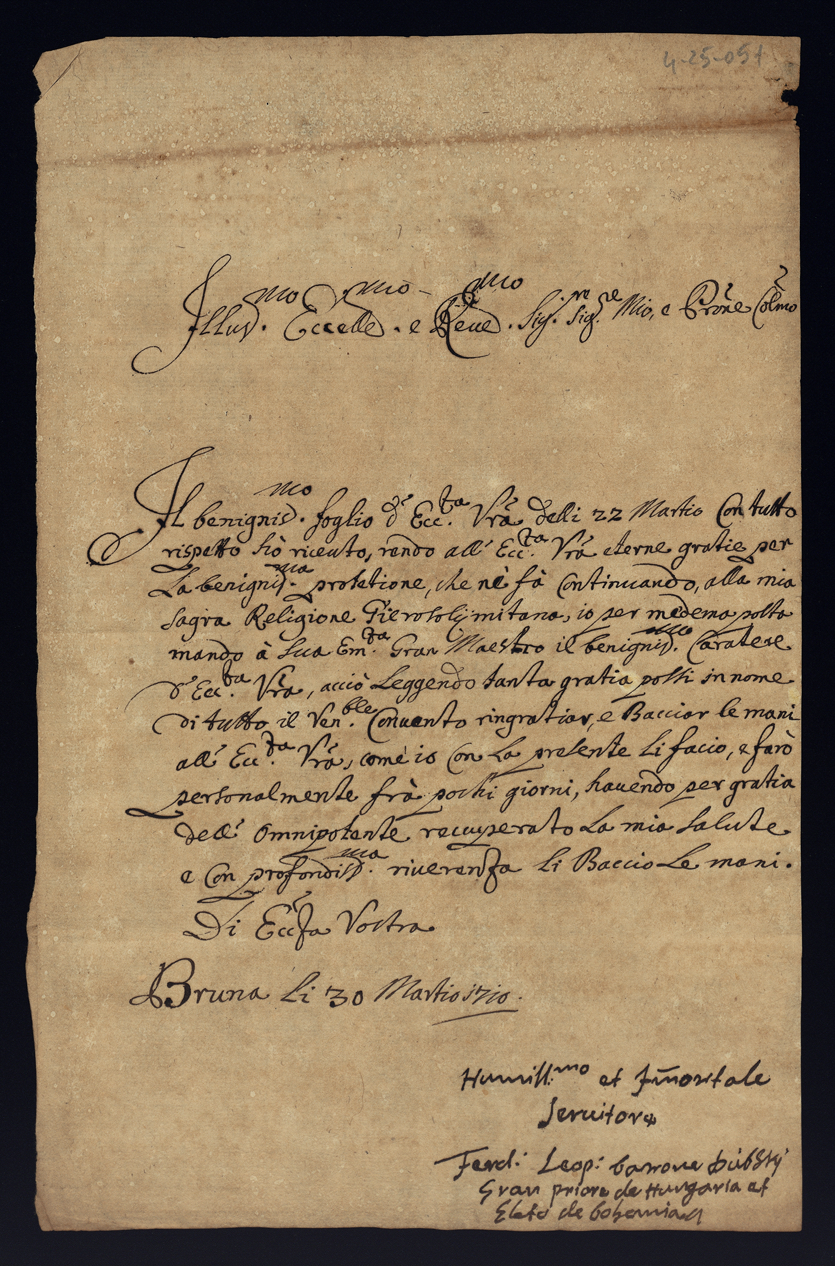 4-25-051
Illus.mo Eccelle.mo e Reue.mo Sig.re Sig.re Mio, e Prõne Colmo
Il benignis.mo foglio d' Ecc.za Vrã delli 22 Martio Con tutto
rispetto hò riceuto, rendo all' Ecc.za Vrã eterne gratie per
La benignis.ma protetione, che nè fà Continuando, alla mia
Sagra Religione Gierosolijmitana, io per medema posta
mando à Sua Em.za Gran Maestro il benignis.mo Caratere
d' Ecc.za Vrã, acciò Leggendo tanta gratia possi in nome
di tutto il Ven.ble Conuento ringratiar, e Bacciar le mani
all' Ecc.za Vrã, come io Con La presente li facio, e farò
personalmente frà pochi giorni, hauendo per gratia
dell' Omnipotente recuperato La mia Salute
e Con profondiss.ma riuerenza li Baccio Le mani.
Di Ecc.za Vostra
Bruna li 30 Martio 1710.
Humill.mo et Im̃ortale
Seruitore
Ferd: Leop: barone Dubsky
Gran priore de Hungaria et
Eleto de bohemia